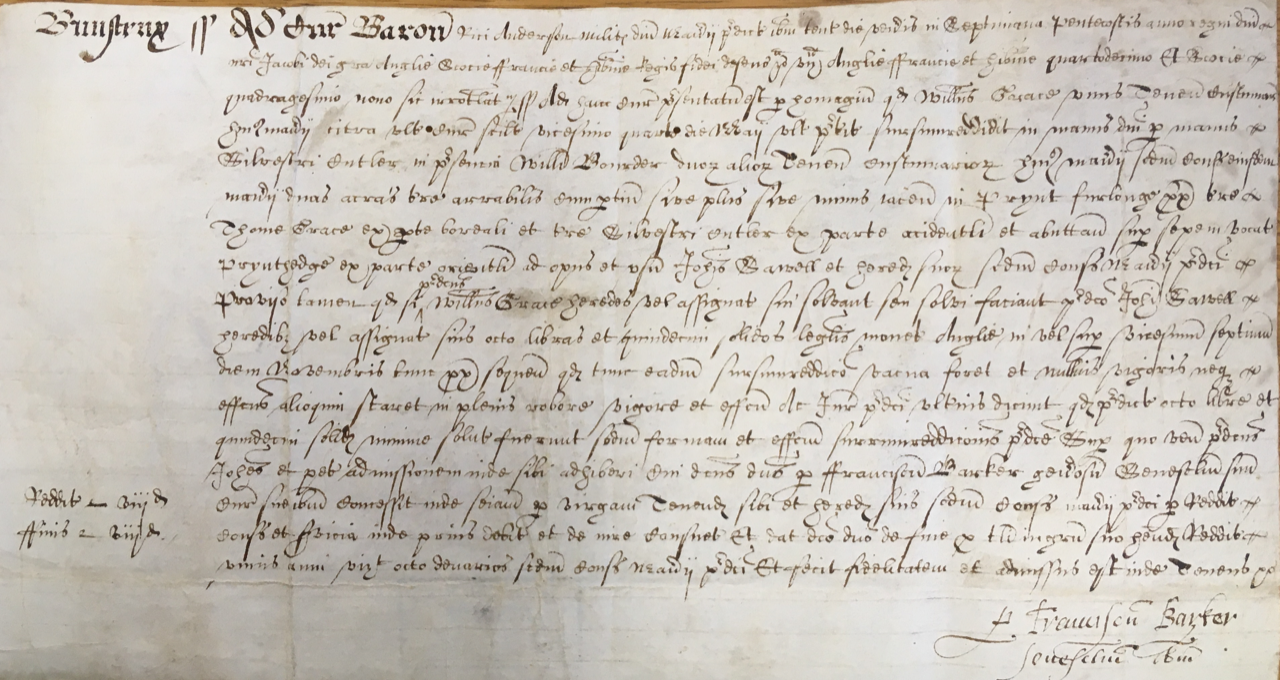 Bunstrux ss Ad Cur Baron Rici Anderson militis dni Manii pdict ibm tent die veneris in Septimana Pentecostis anno regni dni
nri Jacobi dei gra Anglie Scocie ffrancie et hibnie Regis fidei defens &c vizt Anglie ffrancie et hibnie quartodecimo Et Scocie
quadragesimo nono sic irrotlat ss Ad hanc Cur psentatum est p homagiu qd Willms Grace unus Tenen Custumar
huius manii citra ult Cur scilt vicesimo quarto die Maii ult pterit sursumreddidit in manus dni p manus
Silvestri Cutler in psencia Willi Bourder duor alior Tenen Custumarior huius manii scdm Cons eiusdem
manii duas acras tre arrabilis cum ptin sive plus sive minus iacen in Prynt furlonge pp tre
Thome Grace ex pte boreali et tre Silvestri Cutler ex parte accidentli et abuttan sup sepem vocat
Prynthedge ex parte orientli ad opus et usu Johis Sawell et hered suor scdm Cons Manii pdci
Proviso tamen qd si pdcus Willms Grace heredes vel assignat sui solvant seu solvi faciant pdco Johi Sawell
heredib vel assignat suis octo libras et quindecim solidos leglis monet Anglie in vel sup vicesimum septimum
diem Novembris tunc px sequen qd tunc eadem sursumreddico vacua foret et nullius vigoris neq
effectus alioquin staret in plenis robore vigore et effcu Ac Iur pdci ulterius dicunt qd pdict octo libre et
quindecim solid minime solut fuerunt scdm formam et effcum sursumreddicionis pdce Sup quo ven pdcus
Johes et pet admissionem inde sibi adhiberi Cui dcus dns p ffranciscum Barker generosu Senesclum suu
Cur sue ibm Concessit inde seisinam p virgam Tenend sibi et hered suis scdm Cons manii pdci p Reddit
Cons et svicia inde prius debit et de iure Consuet Et dat dco dno de fine p tli ingru suo hend Reddit
unius anni vizt octo denarios scdm Cons Manii pdci Et fecit fidelitatem et admissus est inde Tenens
Reddit - viij d
ffinis - viij d
p Franciscu Barker
Senesclum ibm